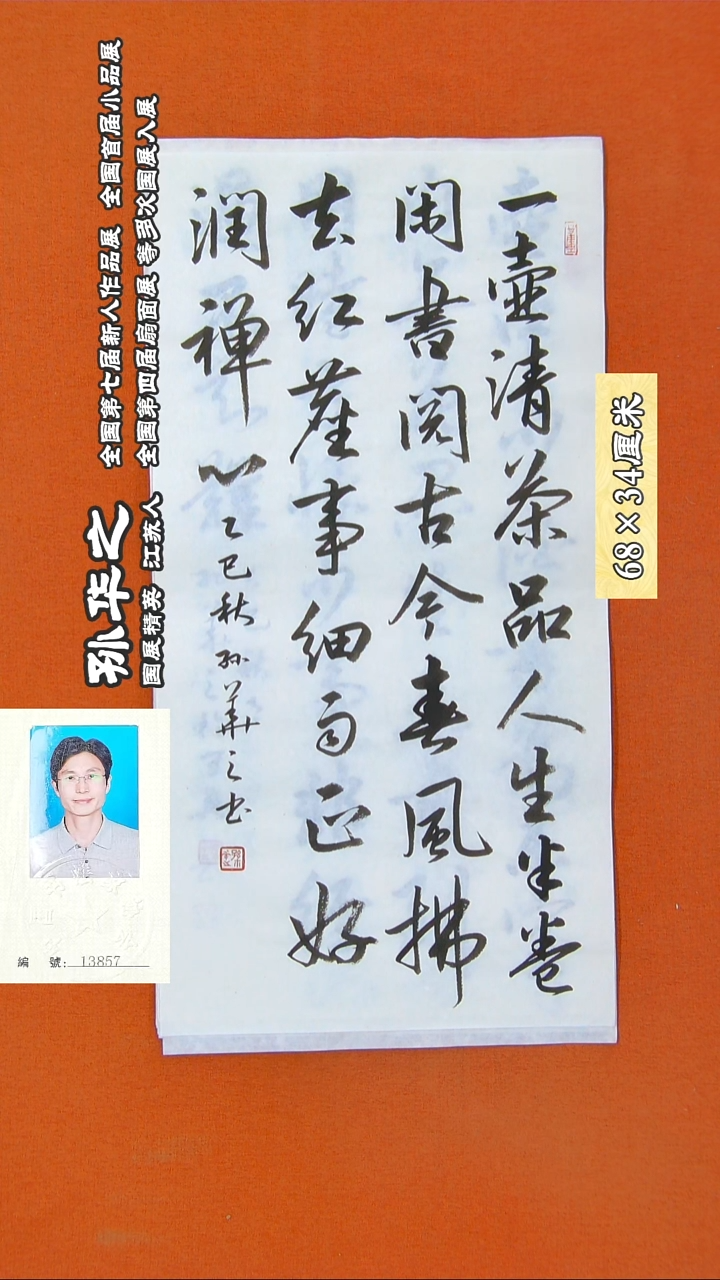 一壺清茶品人生半卷
闲書閱古今春風拂
去红塵事细雨正好
潤禅心
乙巳秋孙華之书
孙华之
国展精英 江苏人
全国第七届新人作品展 全国首届小品展
全国第四届扇面展 等多次国展入展
68×34厘米
編 號: 13857